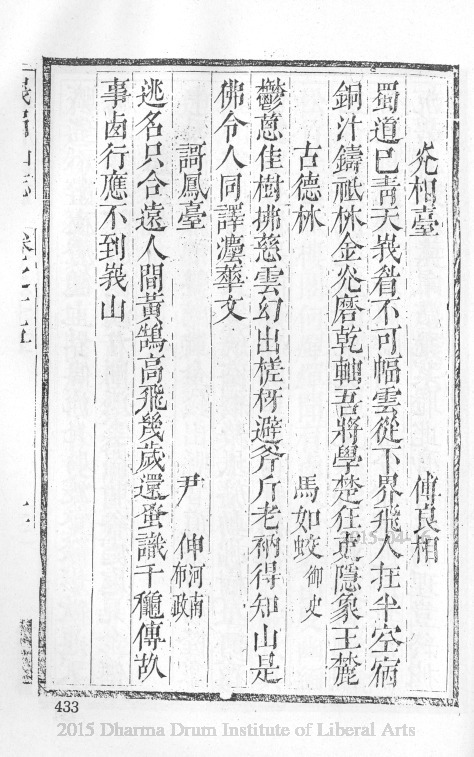 光相臺 傅良相
蜀道巳靑天峩睂不可幅雲從下界飛人在半空宿
銅汁鑄祇林金光磨乾軸吾將學楚狂克隱象王麓
古德林 馬如蛟御史
鬱蔥佳樹拂慈雲幻出槎枒避斧斤老衲得知山是
佛令人同譯法華文
謌鳳臺 尹伸河南布政
逃名只合遠人間黃鵠高飛幾歲還蚤識千龝傳故
事鹵行應不到峩山
峩眉山志 卷之十五
433
2015 Dharma Drum Institute of Liberal Arts